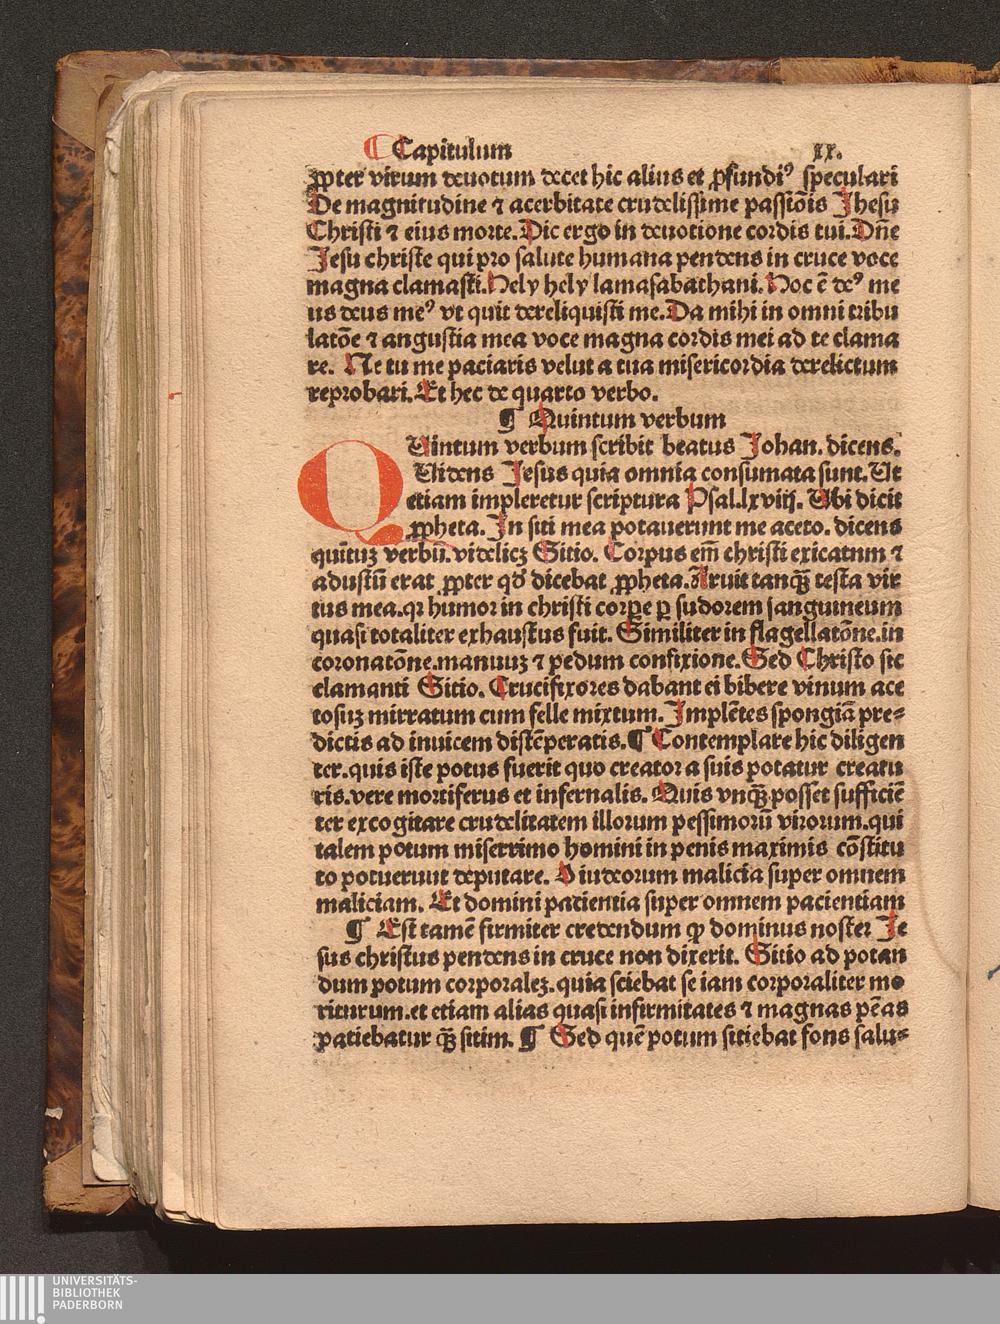 ¶ Capitulum XX.
ꝓpter virum deuotum decet hic alius et ꝓfundiꝰ speculari
De magnitudine ⁊ acerbitate crudelissime passiõis Jhesu
Christi ⁊ eius morte. Dic ergo in deuotione cordis tui. Dñe
Jesu christe qui pro salute humana pendens in cruce voce
magna clamasti. Hely hely lamasabathani. Hoc ē deꝰ me
us deus meꝰ vt quit dereliquisti me. Da mihi in omni tribu
latõe ⁊ angustia mea voce magna cordis mei ad te clama
re. Ne tu me paciaris velut a tua misericordia derelictum
reprobari. Et hec de quarto verbo.
¶ Quintum verbum
QUintum verbum scribit beatus Johan. dicens.
Videns Jesus quia omnia consumata sunt. Ut
etiam impleretur scriptura Psal. lxviij. Ubi dicit
ꝓpheta. In siti mea potauerunt me aceto. dicens
quītuꝫ verbū. videlicꝫ Sitio. Corpus em̄ christi exicatum ⁊
adustū erat ꝓpter qđ dicebat ꝓpheta. Aruit tanq̄ꝫ testa vir
tus mea. qꝛ humor in christi corpe ꝑ sudorem sanguineum
quasi totaliter exhaustus fuit. Similiter in flagellatõne. in
coronatõne. manuuꝫ ⁊ pedum confixione. Sed Christo sic
clamanti Sitio. Crucifixores dabant ei bibere vinum ace
tosuꝫ mirratum cum felle mixtum. Implētes spongiā pre⸗
dictis ad inuicem distēperatis. ¶ Contemplare hic diligen
ter. quis iste potus fuerit quo creator a suis potatur creatu
ris. vere mortiferus et infernalis. Quis vnq̄ꝫ posset sufficiē
ter excogitare crudelitatem illorum pessimorū virorum. qui
talem potum miserrimo homini in penis maximis cõstitu
to potuerunt deputare. O iudeorum malicia super omnem
maliciam. Et domini pacientia super omnem pacientiam
¶ Est tamē firmiter credendum ꝙ dominus noster Je
sus christus pendens in cruce non dixerit. Sitio ad potan
dum potum corporaleꝫ. quia sciebat se iam corporaliter mo
riturum. et etiam alias quasi infirmitates ⁊ magnas pēas
patiebatur q̄ꝫ sitim. ¶ Sed quē potum sitiebat fons salu⸗
UNIVERSITÄTS-
BIBLIOTHEK
PADERBORN